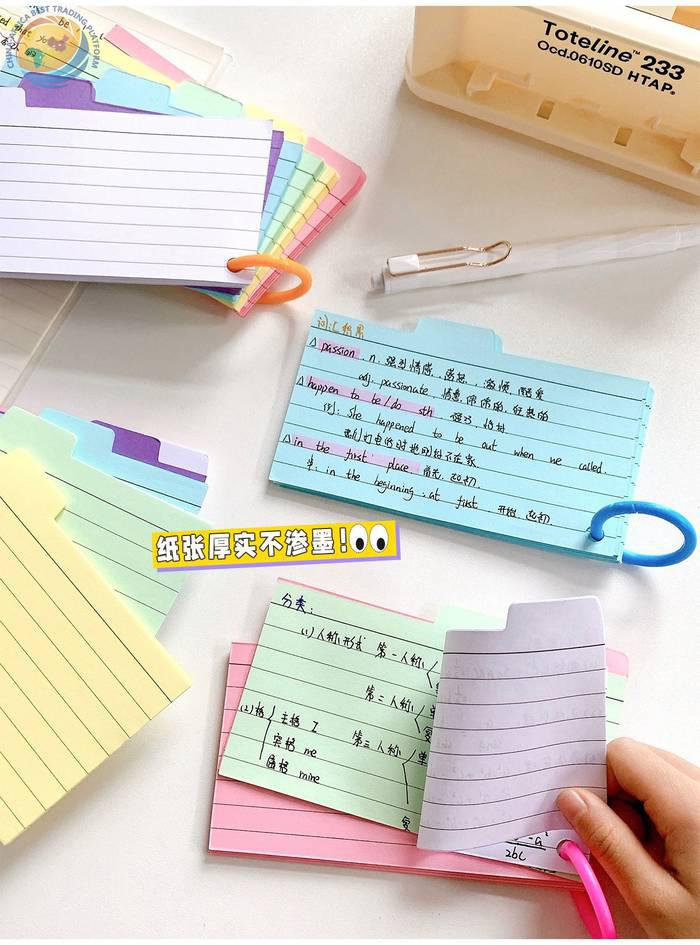 CHINA AFRICA BEST TRADING PLATFORM
Toteline™ 233
Ocd.0610SD HTAP.
be
词汇积累
△ passion . n. 强烈情感,
adj. passionate 情意 的, 狂热的
△ happen to be/do sth 碰巧 恰好
例: she happened to be out when we called.
我们打电话时她刚好不在家
△ in the first place 首先, 起初
in the beginning : at first 开始, 起初
纸张厚实不渗墨!
分类:
(1) 人称形式 第一人称
第二人称
(2) 格 主格 I 第三人称 单
宾格 me
属格 mine
复
2bc